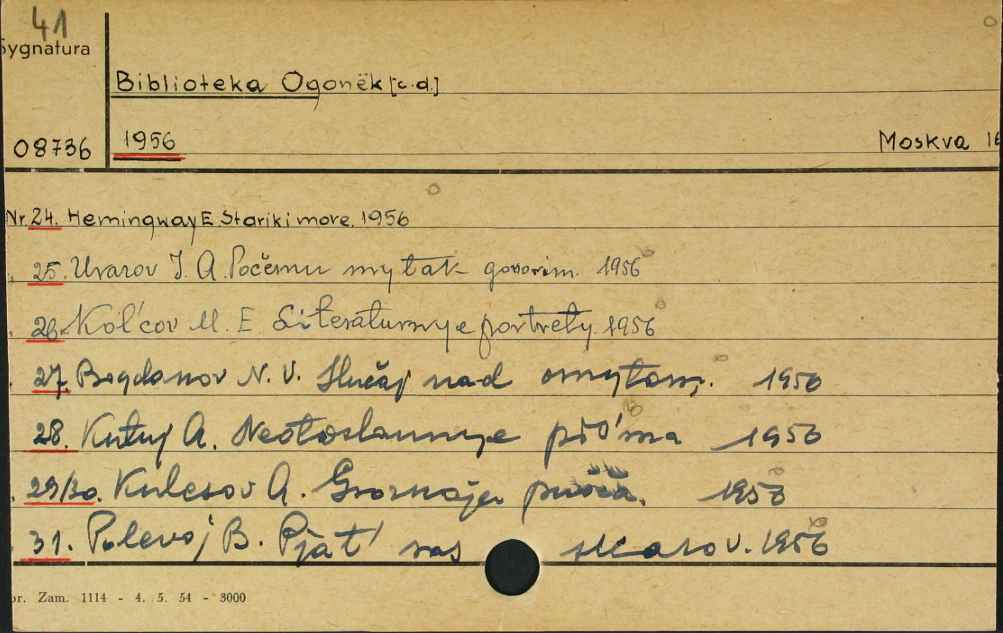 41
Sygnatura
Biblioteka Ogonëk [c.d.]
08736
1956
Moskva 16
Nr. 24. Hemingway E. Starik i more. 1956
25. Uvarov I. A. Počemu my tak govorim. 1956
26. Kol'cov M. E Literaturnye portrety 1956
27. Bogdanov N. V. Slučaj nad 1956
28. Kutuj A. Neotoslannye 1956
29/30. A. Groznaja 1956
31. Polevoj B. Pjat' 1956
or. Zam. 1114 - 4. 5. 54 - 3000